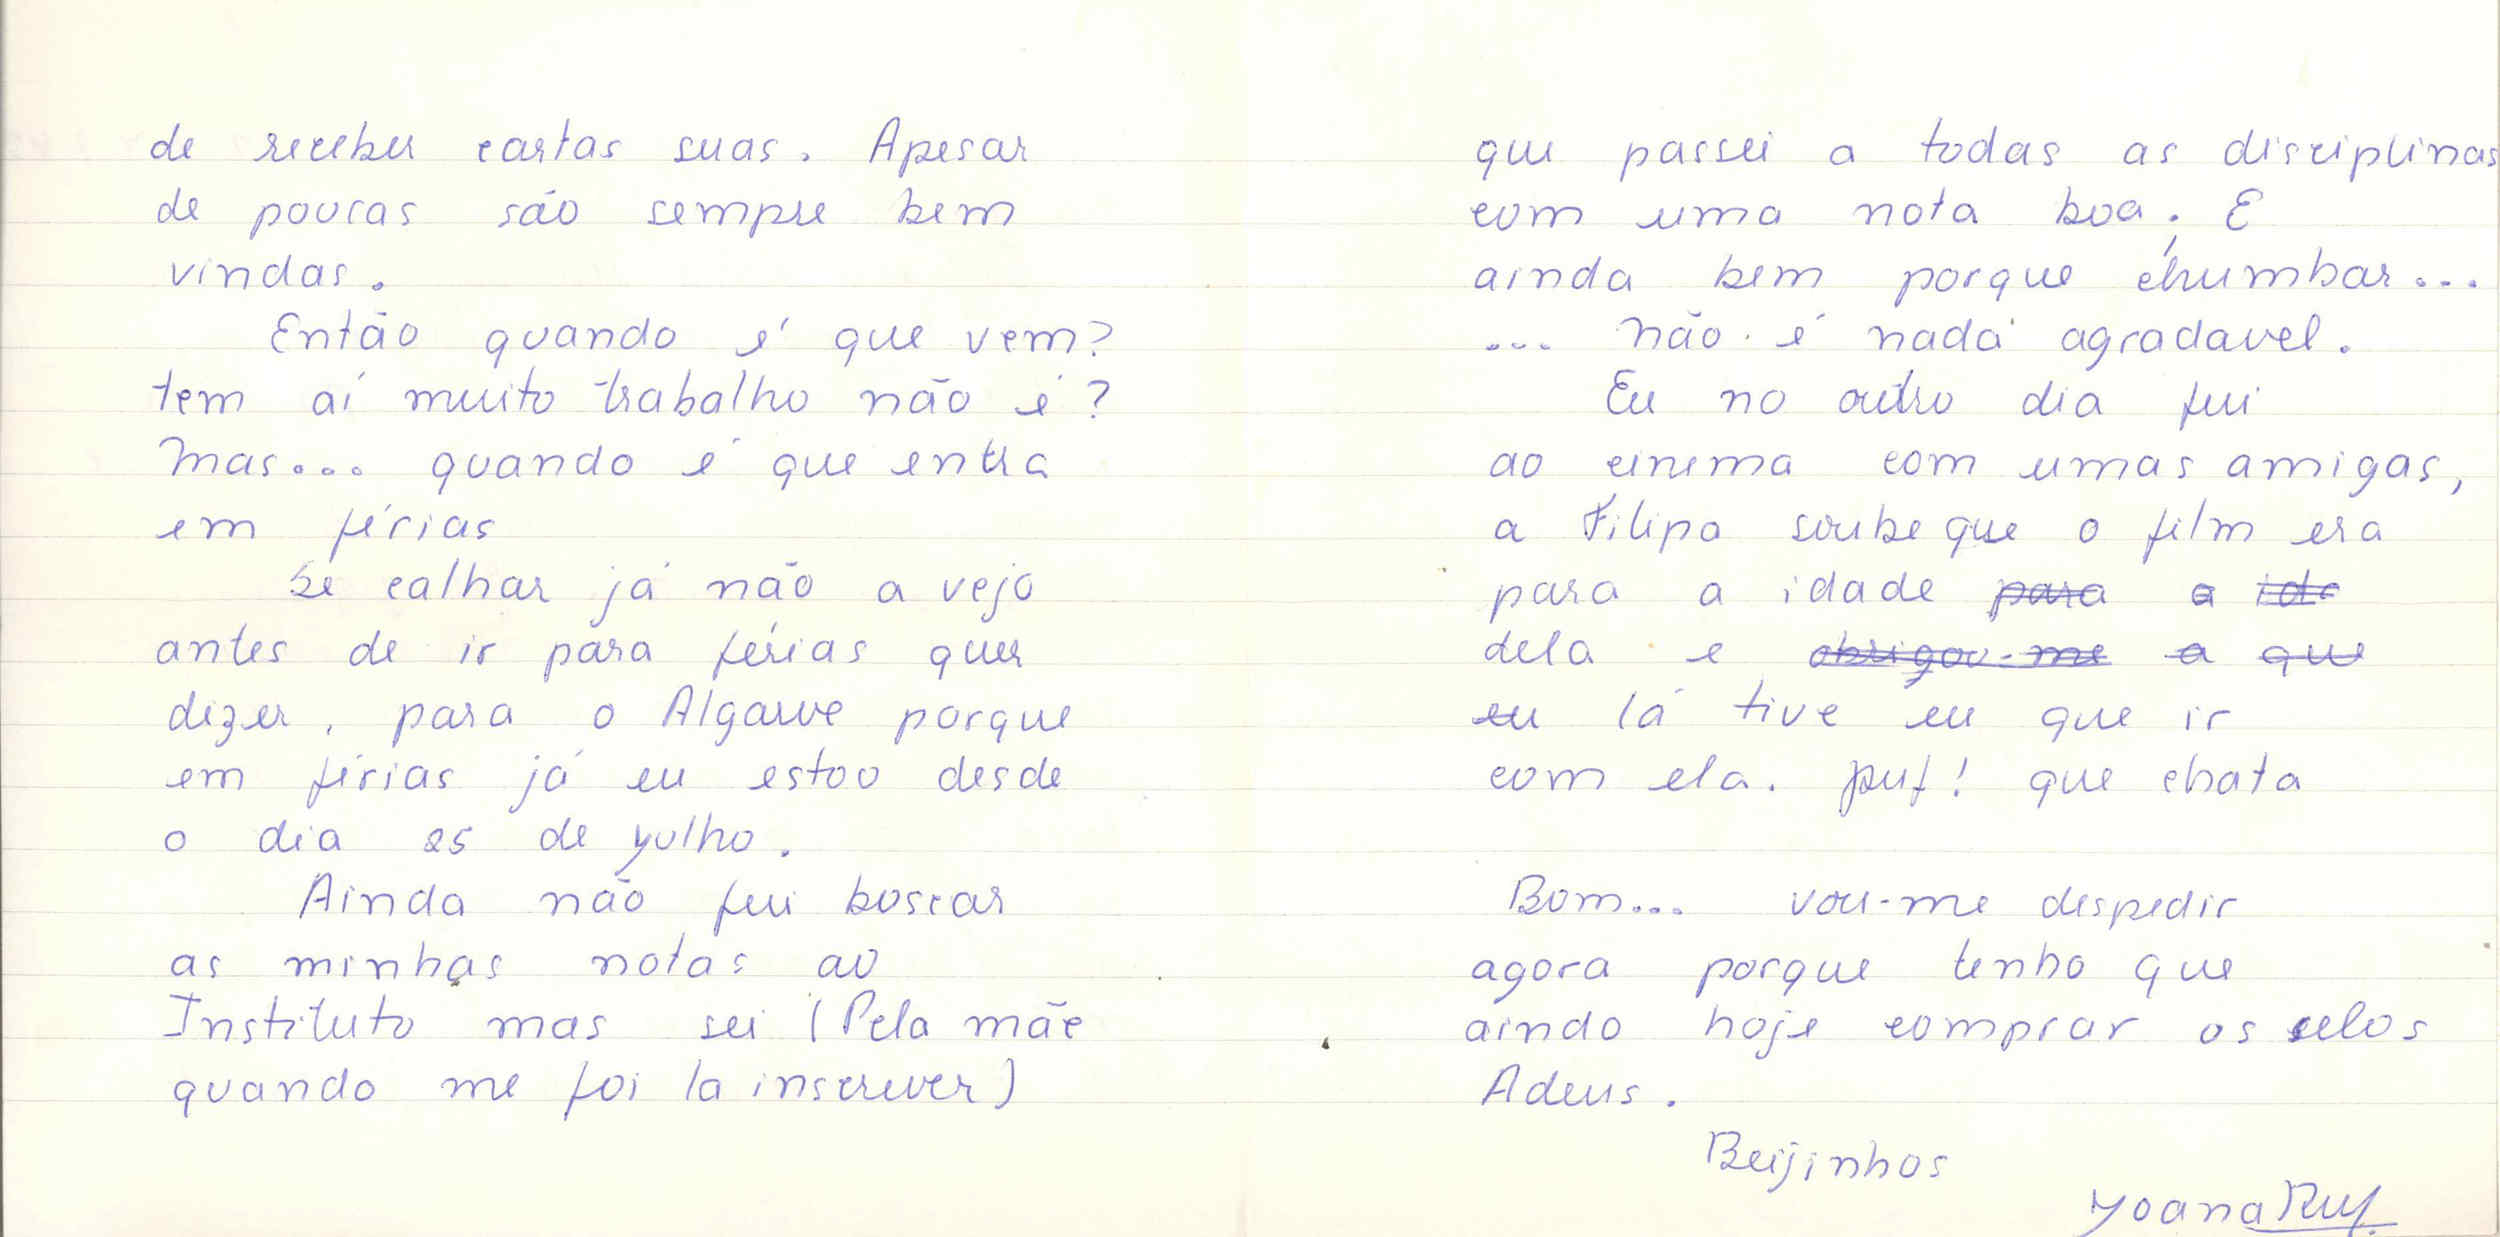 de receber cartas suas. Apesar
de poucas são sempre bem
vindas.
Então quando é que vem?
tem aí muito trabalho não é?
Mas... quando é que entra
em férias
Se calhar já não a vejo
antes de ir para férias quer
dizer, para o Algarve porque
em férias já eu estou desde
o dia 25 de Julho.
Ainda não fui boscar
as minhas notas ao
Instituto mas sei (Pela mãe
quando me foi la inscrever)
que passei a todas as disciplinas
com uma nota boa. E
ainda bem porque chumbar...
... não é nada agradavel.
Eu no outro dia fui
ao cinema com umas amigas,
a Filipa soube que o film era
para a idade para a ida
dela e obrigou-me a que
eu lá tive eu que ir
com ela. puf! que chata
Bom... vou-me despedir
agora porque tenho que
ainda hoje comprar os selos
Adeus.
Beijinhos
Joana Ruf